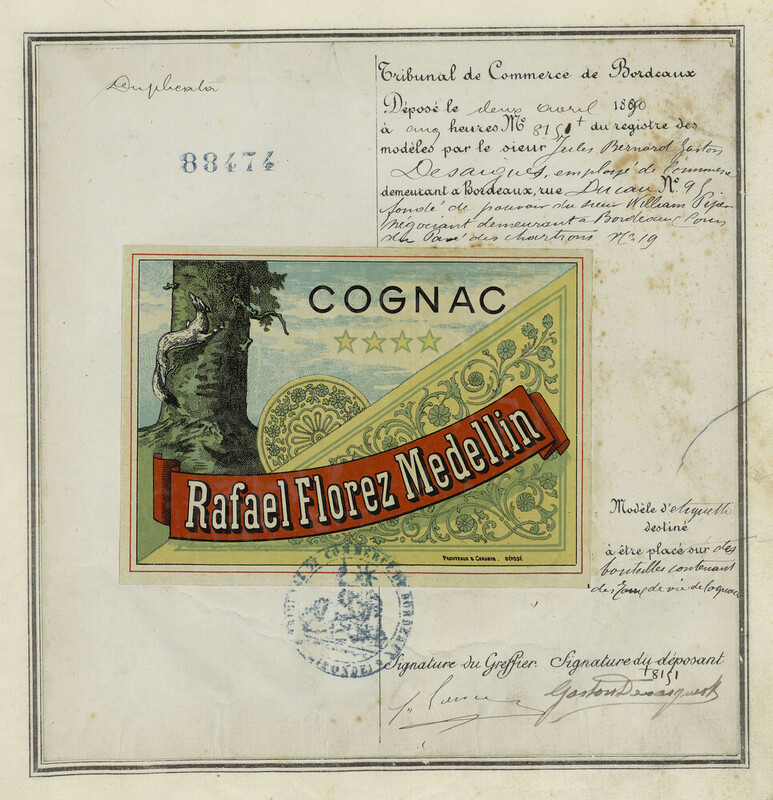 Duplicata
88474
Tribunal de Commerce de Bordeaux
Déposé le deux avril 1890
à cinq heures No 8151 + du registre des
modèles par le sieur Jules Bernard Gaston
Desaigues, employé de Commerce
demeurant a Bordeaux, rue Ducau No 95
fondé de pouvoir du sieur William Piper
négociant demeurant a Bordeaux Cours
du Pavé des Chartrons No 19
COGNAC
Rafael Florez Medellin
DÉPOSÉ
Modèle d'étiquette
destiné
à être placé sur des
bouteilles contenant
des Eaux de vie de Cognac
TRIBUNAL DE COMMERCE DE BORDEAUX
(GIRONDE)
Signature du Greffier. Signature du déposant
+ 8151